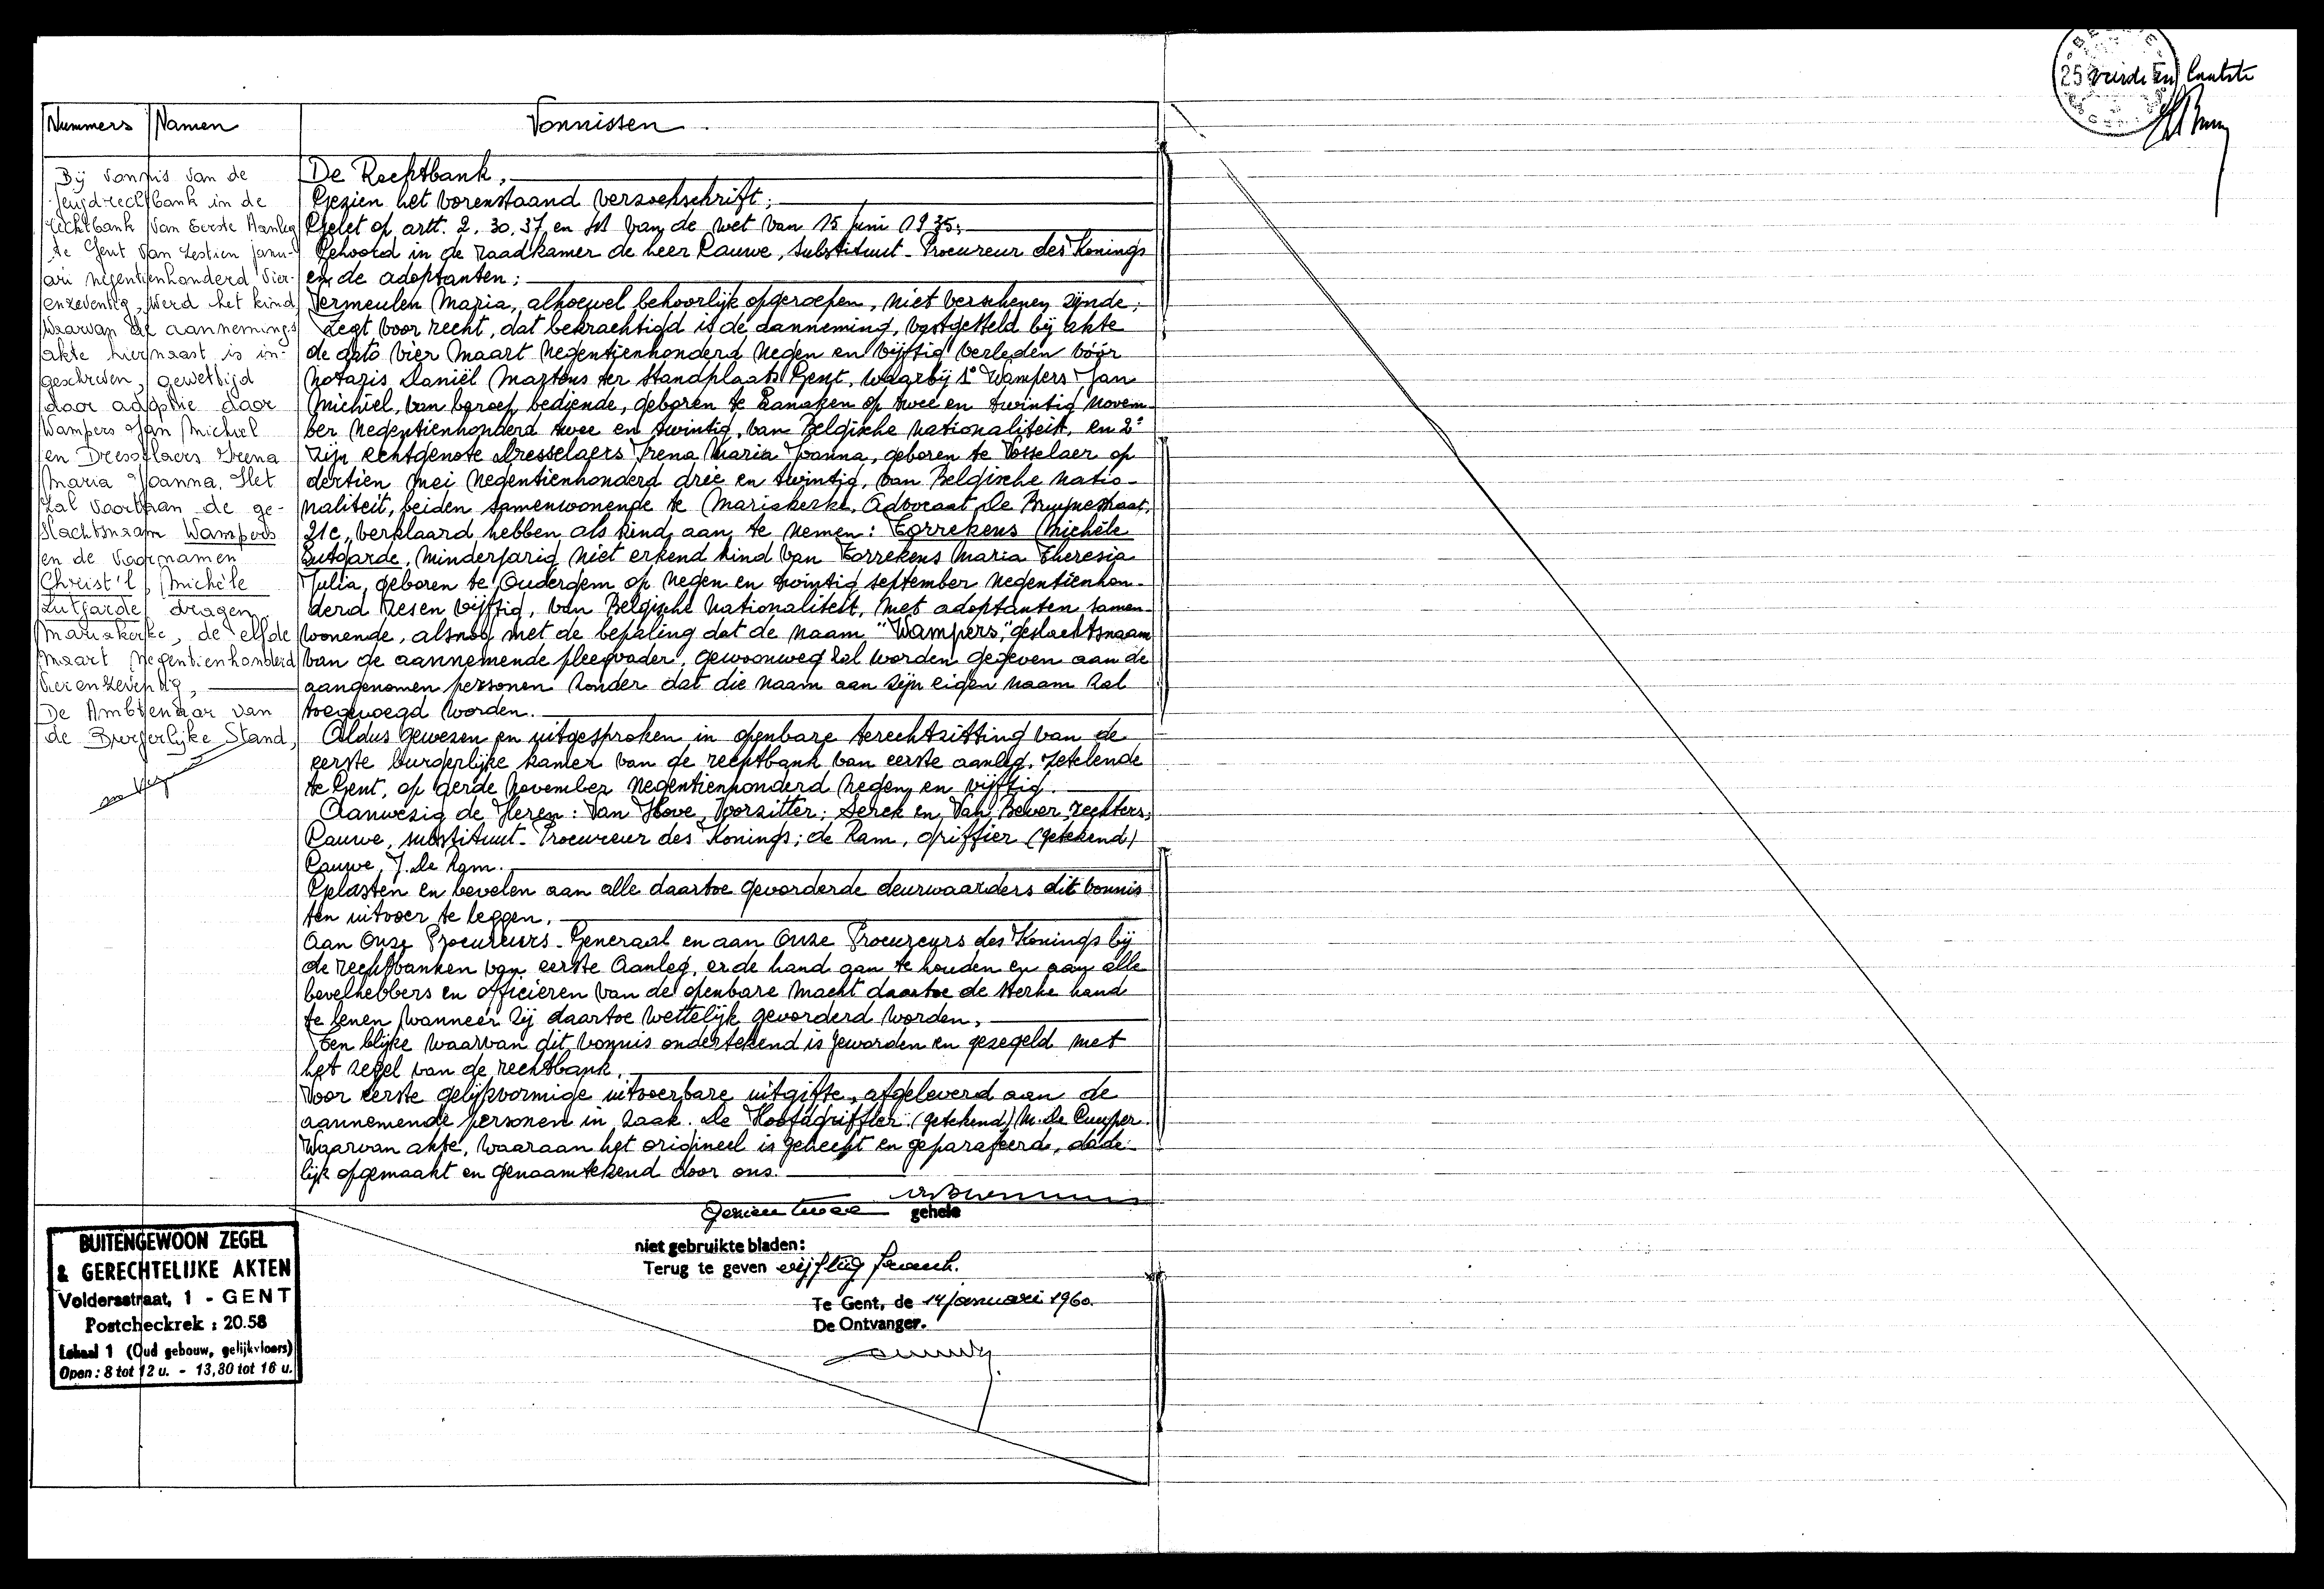 25
vierde en laatste
Nummers Namen
Vonnissen
Bij vonnis van de
Jeugdrechtbank in de
rechtbank van Eerste Aanleg
te Gent van zestien janu-
ari negentienhonderd vier-
enzeventig, werd het kind
waarvan de aannemings
akte hiernaast is in-
geschreven, gewettigd
door adoptie door
Wampers Jan Michiel
en Dresselaers Irena
Maria Joanna. Het
zal voortaan de ge-
slachtsnaam Wampers
en de voornamen
Christ'l, Michèle
Lutgarde dragen.
Mariakerke, de elfde
maart negentienhonderd
vierenzeventig,
De Ambtenaar van
de Burgerlijke Stand,
De Rechtbank,
Gezien het vorenstaand verzoekschrift;
Gelet op artt. 2. 30. 37 en van de wet van 15 juni 1935;
Gehoord in de raadkamer de heer Cauwe, substituut-Procureur des Konings
en de adoptanten;
Vermeulen Maria, alhoewel behoorlijk opgeroepen, niet verschenen zijnde;
Zegt voor recht, dat bekrachtigd is de aanneming, vastgesteld bij akte
de dato vier Maart negentienhonderd negen en vijftig verleden vóór
notaris Daniël Martens ter standplaats Gent, waarbij 1° Wampers Jan
Michiel, van beroep bediende, geboren te Lanaken op twee en twintig novem-
ber negentienhonderd twee en twintig, van Belgische nationaliteit, en 2°
zijn echtgenote Dresselaers Irena Maria Joanna, geboren te Vosselaer op
dertien mei negentienhonderd drie en twintig, van Belgische natio-
naliteit, beiden samenwonende te Mariakerke, Advocaat De Bruynestraat,
21c, verklaard hebben als kind aan te nemen: Torrekens Michèle
Lutgarde, minderjarig niet erkend kind van Torrekens Maria Theresia
Julia, geboren te Ouderdem op negen en twintig september negentienhon-
derd zesen vijftig, van Belgische nationaliteit, met adoptanten samen-
wonende, alsnog met de bepaling dat de naam "Wampers," geslachtsnaam
van de aannemende pleegvader, gewoonweg zal worden gegeven aan de
aangenomen personen zonder dat die naam aan zijn eigen naam zal
toegevoegd worden.
Aldus gewezen en uitgesproken in openbare terechtzitting van de
eerste burgerlijke kamer van de rechtbank van eerste aanleg, zetelende
te Gent, op derde november negentienhonderd negen en vijftig.
Aanwezig de Heren: Van Hove, Voorzitter; Serck en Van Bever, rechters,
Cauwe, substituut-Procureur des Konings; de Ram, griffier (getekend)
Cauwe, J. De Ram.
Gelasten en bevelen aan alle daartoe gevorderde deurwaarders dit vonnis
ten uitvoer te leggen.
Aan Onze Procureurs-Generaal en aan Onze Procureurs des Konings bij
de rechtbanken van eerste Aanleg, er de hand aan te houden en aan alle
bevelhebbers en officieren van de openbare macht daartoe de sterke hand
te lenen wanneer zij daartoe wettelijk gevorderd worden,
Ten blijke waarvan dit vonnis ondertekend is geworden en gezegeld met
het zegel van de rechtbank.
Voor eerste gelijkvormige uitvoerbare uitgifte, afgeleverd aan de
aannemende personen in zaak. De Hoofdgriffier (getekend) M. De Cuyper.
Waarvan akte, waaraan het origineel is gehecht en geparafeerd, dade-
lijk opgemaakt en genaamtekend door ons.
Gezien twee gehele
niet gebruikte bladen:
Terug te geven vijftig frank.
Te Gent, de 14 januari 1960.
De Ontvanger.
BUITENGEWOON ZEGEL
& GERECHTELIJKE AKTEN
Voldersstraat, 1 - GENT
Postcheckrek : 20.58
Lokaal 1 (Oud gebouw, gelijkvloers)
Open : 8 tot 12 u. - 13,30 tot 16 u.